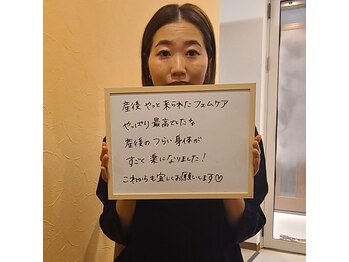 産後 やっと 来られた フェムケア
やっぱり 最高でしたな
産後の つらい 身体が
すごく 楽になりました！
これからも 宜しくお願いします♡